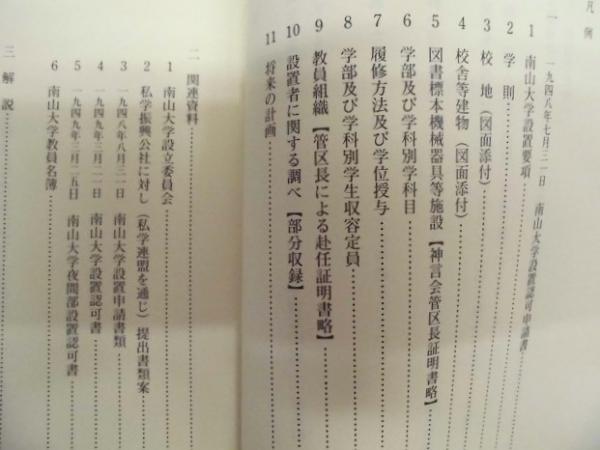 凡例
一 一九四八年七月三一日 南山大学設置認可申請書
1 南山大学設置要項
2 学則
3 校地(図面添付)
4 校舎等建物(図面添付)
5 図書標本機械器具等施設【神言会管区長証明書略】
6 学部及び学科別学科目
7 履修方法及び学位授与
8 学部及び学科別学生収容定員
9 教員組織【管区長による赴任証明書略】
10 設置者に関する調べ【部分収録】
11 将来の計画
二 関連資料
1 南山大学設立委員会
2 私学振興公社に対し(私学連盟を通じ)提出書類案
3 一九四八年八月三一日 南山大学設置申請書類
4 一九四九年三月二一日 南山大学設置認可書
5 一九四九年三月二五日 南山大学夜間部設置認可書
6 南山大学教員名簿
三 解説